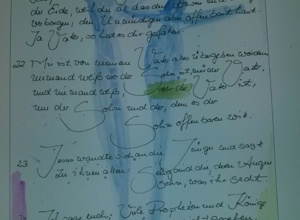 die Erde, weil du dies den Weisen und
verborgen, den Unmündigen aber offenbart hast.
Ja Vater, so hat es dir gefallen
22 Mir ist von meinem Vater alles übergeben worden
niemand weiß wer der Sohn ist, nur der Vater,
und niemand weiß, wer der Vater ist,
nur der Sohn und der, dem es der
Sohn offenbaren will.
23 Jesus wandte sich an die Jünger und sagt
zu ihnen allein: Selig sind die, deren Augen
sehen, was ihr seht.
24 Ich sage euch: Viele Propheten und Könige